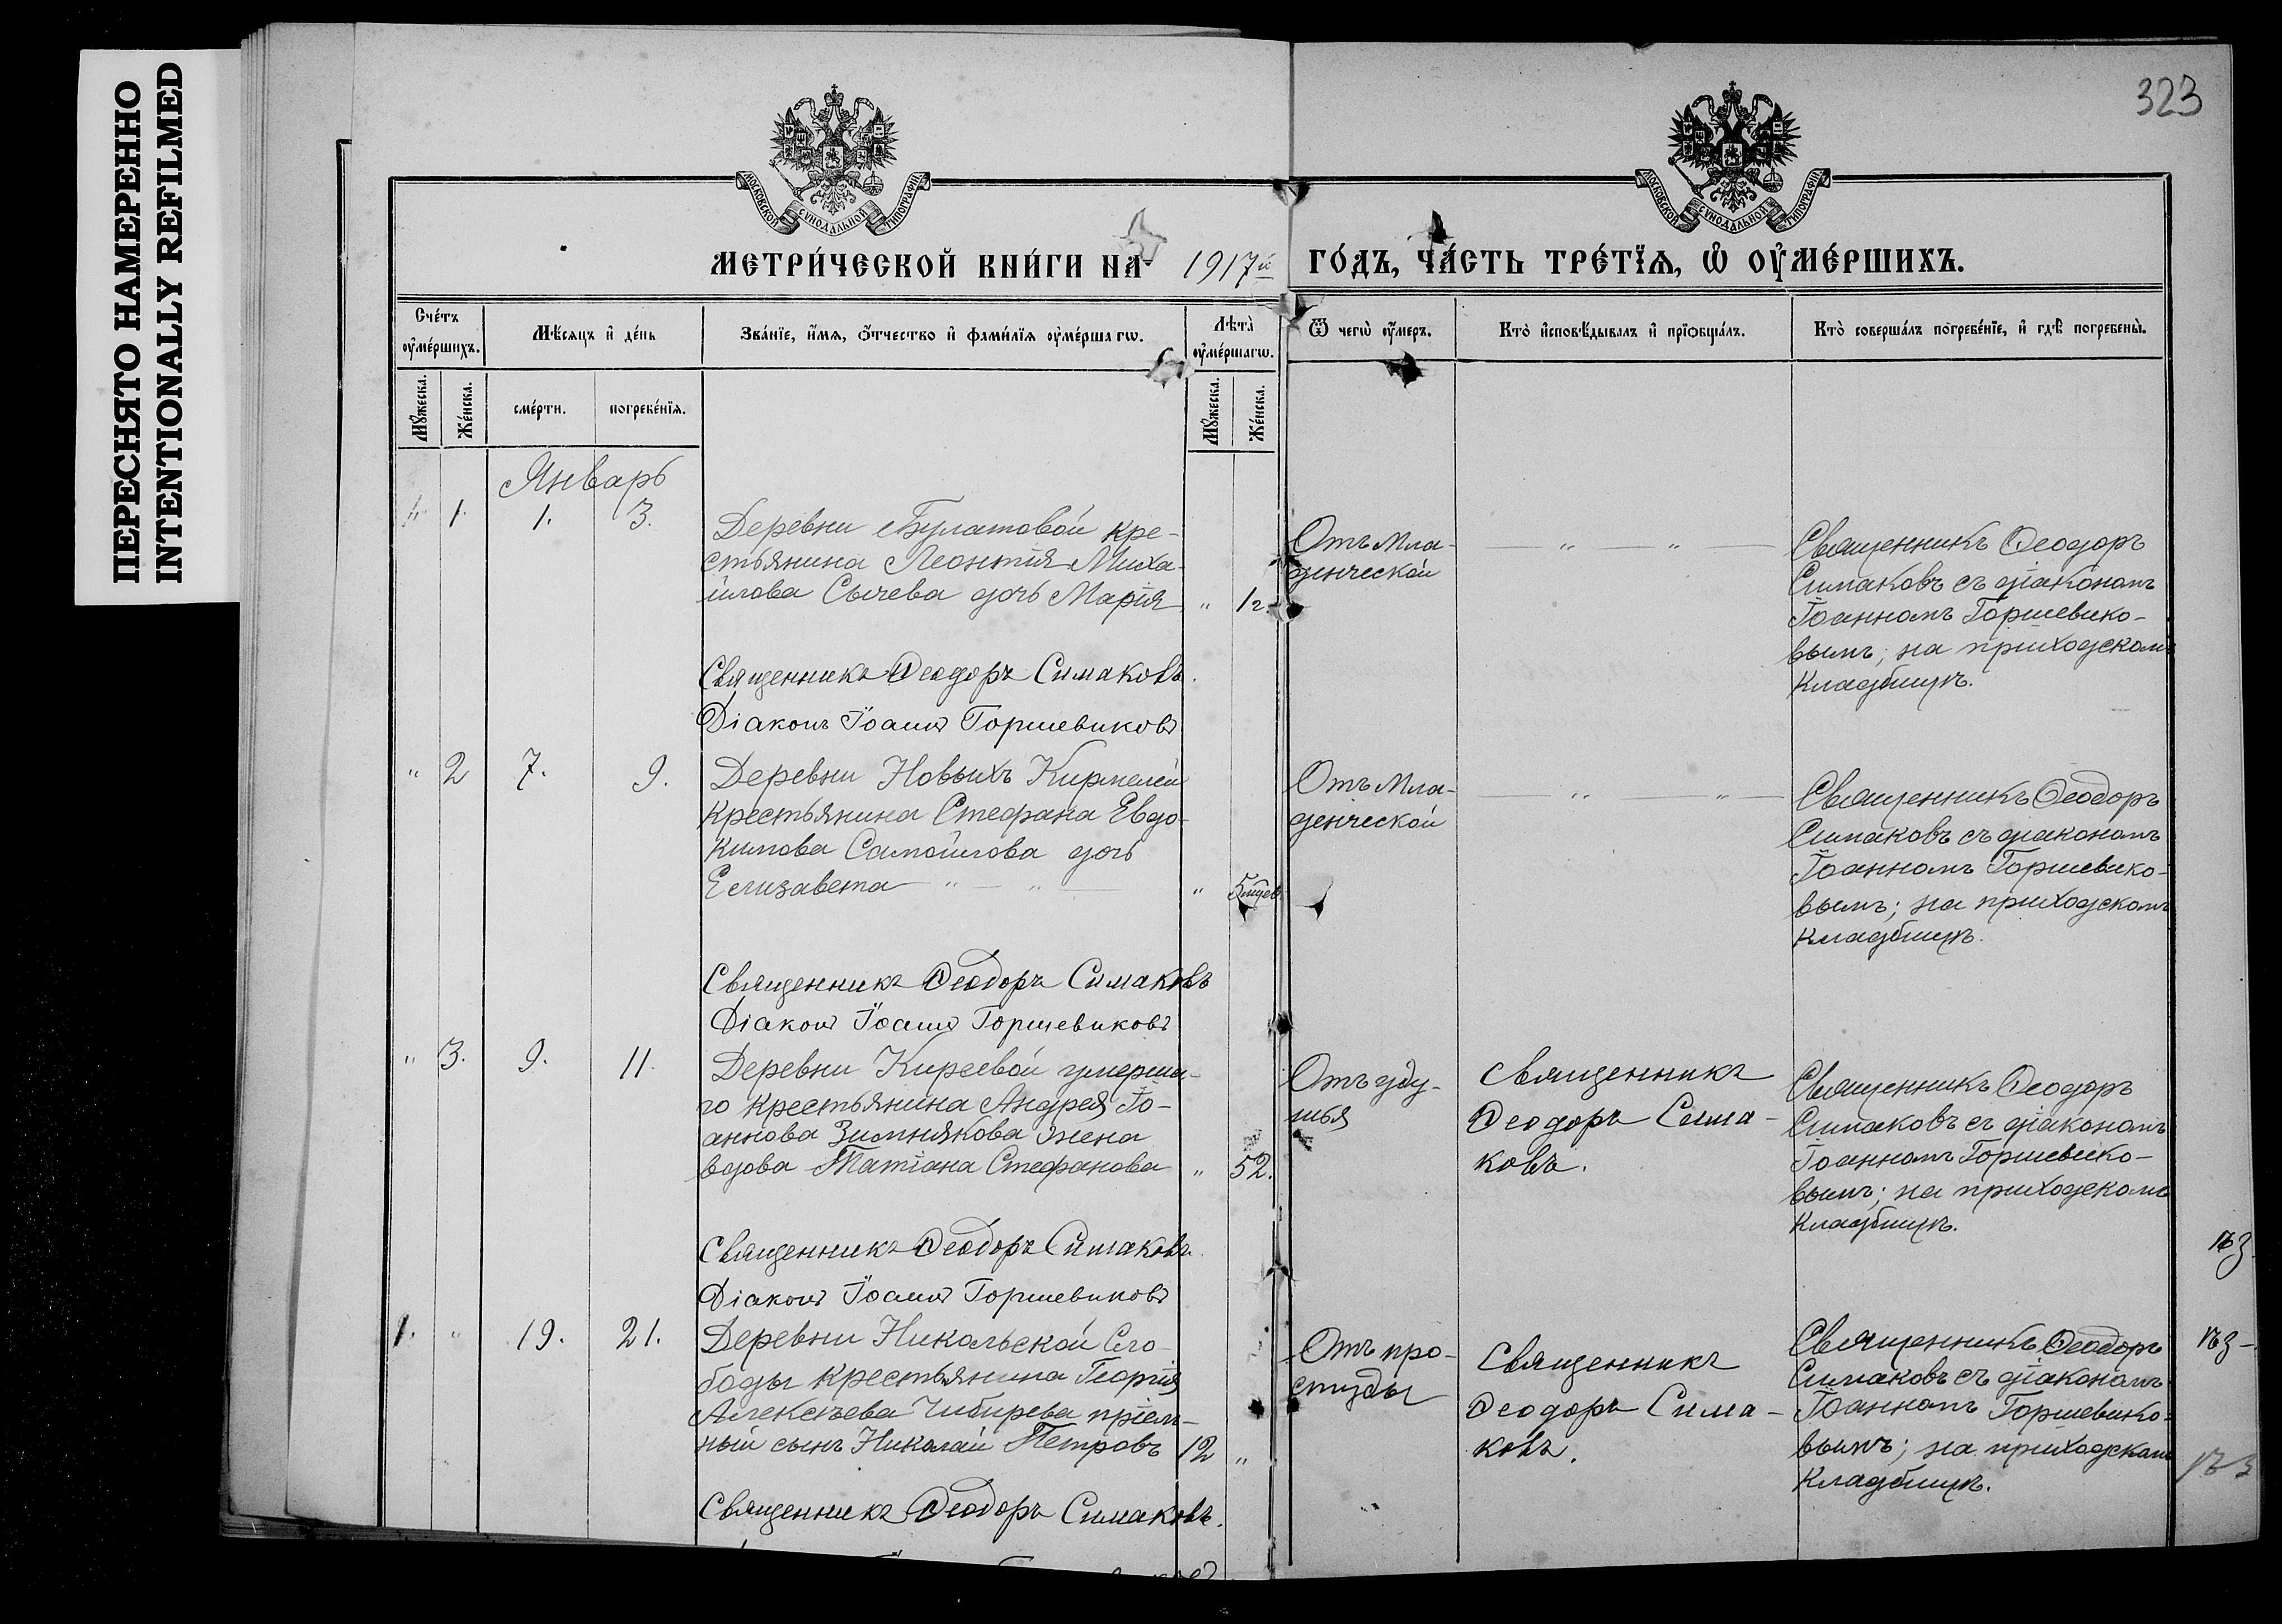 ПЕРЕСНЯТО НАМЕРЕННО
INTENTIONALLY REFILMED
323
МОСКОВСКОЙ СѴНОДАЛЬНОЙ ТИПОГРАФІИ
МОСКОВСКОЙ СѴНОДАЛЬНОЙ ТИПОГРАФІИ
МЕТРИ́ЧЕСКОЙ КНИ́ГИ НА 1917й ГО́ДЪ, ЧА́СТЬ ТРЕ́ТЇѦ, Ѡ҆ ОУ҆МЕ́РШИХЪ.
Сче́тъ оу҆ме́ршихъ.
Мѣ́сяцъ и҆ де́нь
Зва́нїе, и҆́мѧ, ѻ҆́тчество и҆ фами́лїѧ оу҆ме́ршагѡ.
Лѣ́та оу҆ме́ршагѡ.
Ѿ чегѡ̀ оу҆́меръ.
Кто̀ и҆сповѣ́дывалъ и҆ прїѡбща́лъ.
Кто̀ соверша́лъ погребе́нїе, и҆ гдѣ̀ погребены̀.
Мꙋ́жеска.
Же́нска.
сме́рти.
погребе́нїѧ.
Мꙋ́жеска.
Же́нска.
Январь
" 1. 1. 3.
Деревни Булатовой кре-
стьянина Леонтія Миха-
йлова Сычева дочь Марія " 1 г.
Отъ Мла-
денческой
— " — " —
Священникъ Ѳеодоръ
Симаковъ съ діакономъ
Іоанномъ Горшевико-
вымъ; на приходскомъ
кладбищѣ.
Священникъ Ѳеодоръ Симаковъ.
Діаконъ Іоаннъ Горшевиковъ
" 2 7. 9.
Деревни Новыхъ Кирмелей
крестьянина Стефана Евдо-
кимова Самойлова дочь
Елизавета — " — " — " 5 мцев
Отъ Мла-
денческой
— " — " —
Священникъ Ѳеодоръ
Симаковъ съ діакономъ
Іоанномъ Горшевико-
вымъ; на приходскомъ
кладбищѣ.
Священникъ Ѳеодоръ Симаковъ
Діаконъ Іоаннъ Горшевиковъ
" 3. 9. 11.
Деревни Киреевой умерша-
го крестьянина Андрея Іо-
аннова Зимнякова жена
вдова Татіана Стефанова " 52.
Отъ уду-
шья
Священникъ
Ѳеодоръ Сима-
ковъ.
Священникъ Ѳеодоръ
Симаковъ съ діакономъ
Іоанномъ Горшевико-
вымъ; на приходскомъ
кладбищѣ.
Священникъ Ѳеодоръ Симаковъ.
Діаконъ Іоаннъ Горшевиковъ
1. " 19. 21.
Деревни Никольской Сло-
боды крестьянина Георгія
Алексѣева Чибирева пріем-
ный сынъ Николай Петровъ 12 "
Отъ про-
студы
Священникъ
Ѳеодоръ Сима-
ковъ.
Священникъ Ѳеодоръ
Симаковъ съ діакономъ
Іоанномъ Горшевико-
вымъ; на приходскомъ
кладбищѣ.
Священникъ Ѳеодоръ Симаковъ.